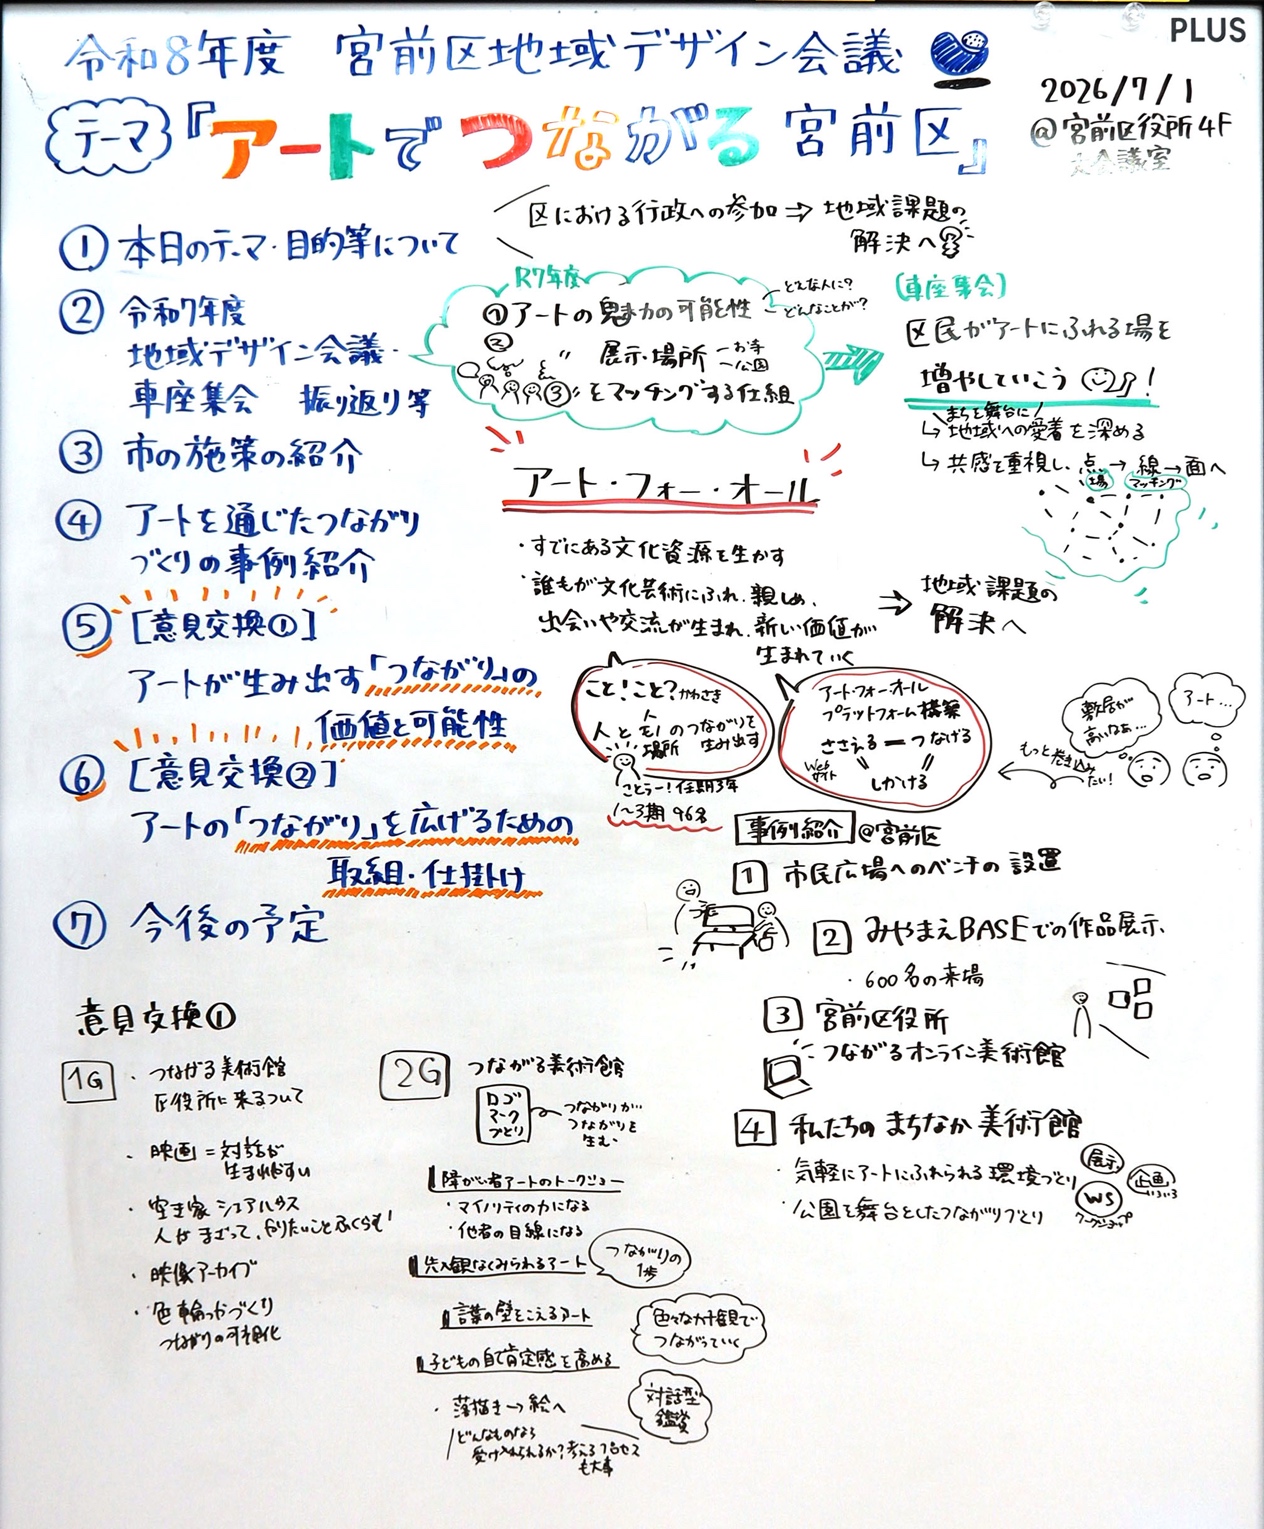 PLUS
令和8年度 宮前区地域デザイン会議
2026/7/1
@宮前区役所4F
大会議室
テーマ
『アートでつながる宮前区』
① 本日のテーマ・目的等について
区における行政への参加 ⇒ 地域課題の
解決へ
② 令和7年度
地域デザイン会議・
車座集会 振り返り等
R7年度
①アートの魅力の可能性
どんな人に?
どんなことが?
② 〃 展示・場所
お寺
公園
③ 〃 をマッチングする仕組
[車座集会]
区民がアートにふれる場を
増やしていこう!
まちを舞台に
↳ 地域への愛着を深める
↳ 共感を重視し、点→線→面へ
場
マッチング
③ 市の施策の紹介
アート・フォー・オール
・すでにある文化資源を生かす
・誰もが文化芸術にふれ、親しめ、
出会いや交流が生まれ、新しい価値が
生まれていく
⇒ 地域課題の
解決へ
④ アートを通じたつながり
づくりの事例紹介
⑤ [意見交換①]
アートが生み出す「つながり」の
価値と可能性
⑥ [意見交換②]
アートの「つながり」を広げるための
取組・仕掛け
⑦ 今後の予定
こと!こと?かわさき
人と
人
モノ
場所
のつながりを
生み出す
ことラー!任期3年
1〜3期 96名
アート・フォー・オール
プラットフォーム構築
ささえる ー つなげる
しかける
Web
サイト
もっと巻き込み
たい!
敷居が
高いなぁ…
アート…
事例紹介 @宮前区
1 市民広場へのベンチの設置
2 みやまえBASEでの作品展示、
・600名の来場
3 宮前区役所
つながるオンライン美術館
4 私たちの まちなか美術館
・気軽にアートにふれられる環境づくり
展示
企画
WS
ワークショップ
・公園を舞台としたつながりづくり
意見交換①
1G
・つながる美術館
区役所に来るついで
・映画=対話が
生まれやすい
・空き家シェアハウス
人がまざって、やりたいことふくらむ!
・映像アーカイブ
・色輪っかづくり
つながりの可視化
2G
つながる美術館
ロゴ
マーク
づくり
つながりが…
つながりを
生む、
障がい者アートのトークショー
・マイノリティの力になる
・他者の目線になる
先入観なくみられるアート
つながりの
1歩
言葉の壁をこえるアート
色々な価値観で
つながっていく
子どもの自己肯定感を高める
・落描き→絵へ
対話型
鑑賞
どんなものなら
受け入れられるか?考えるプロセス
も大事